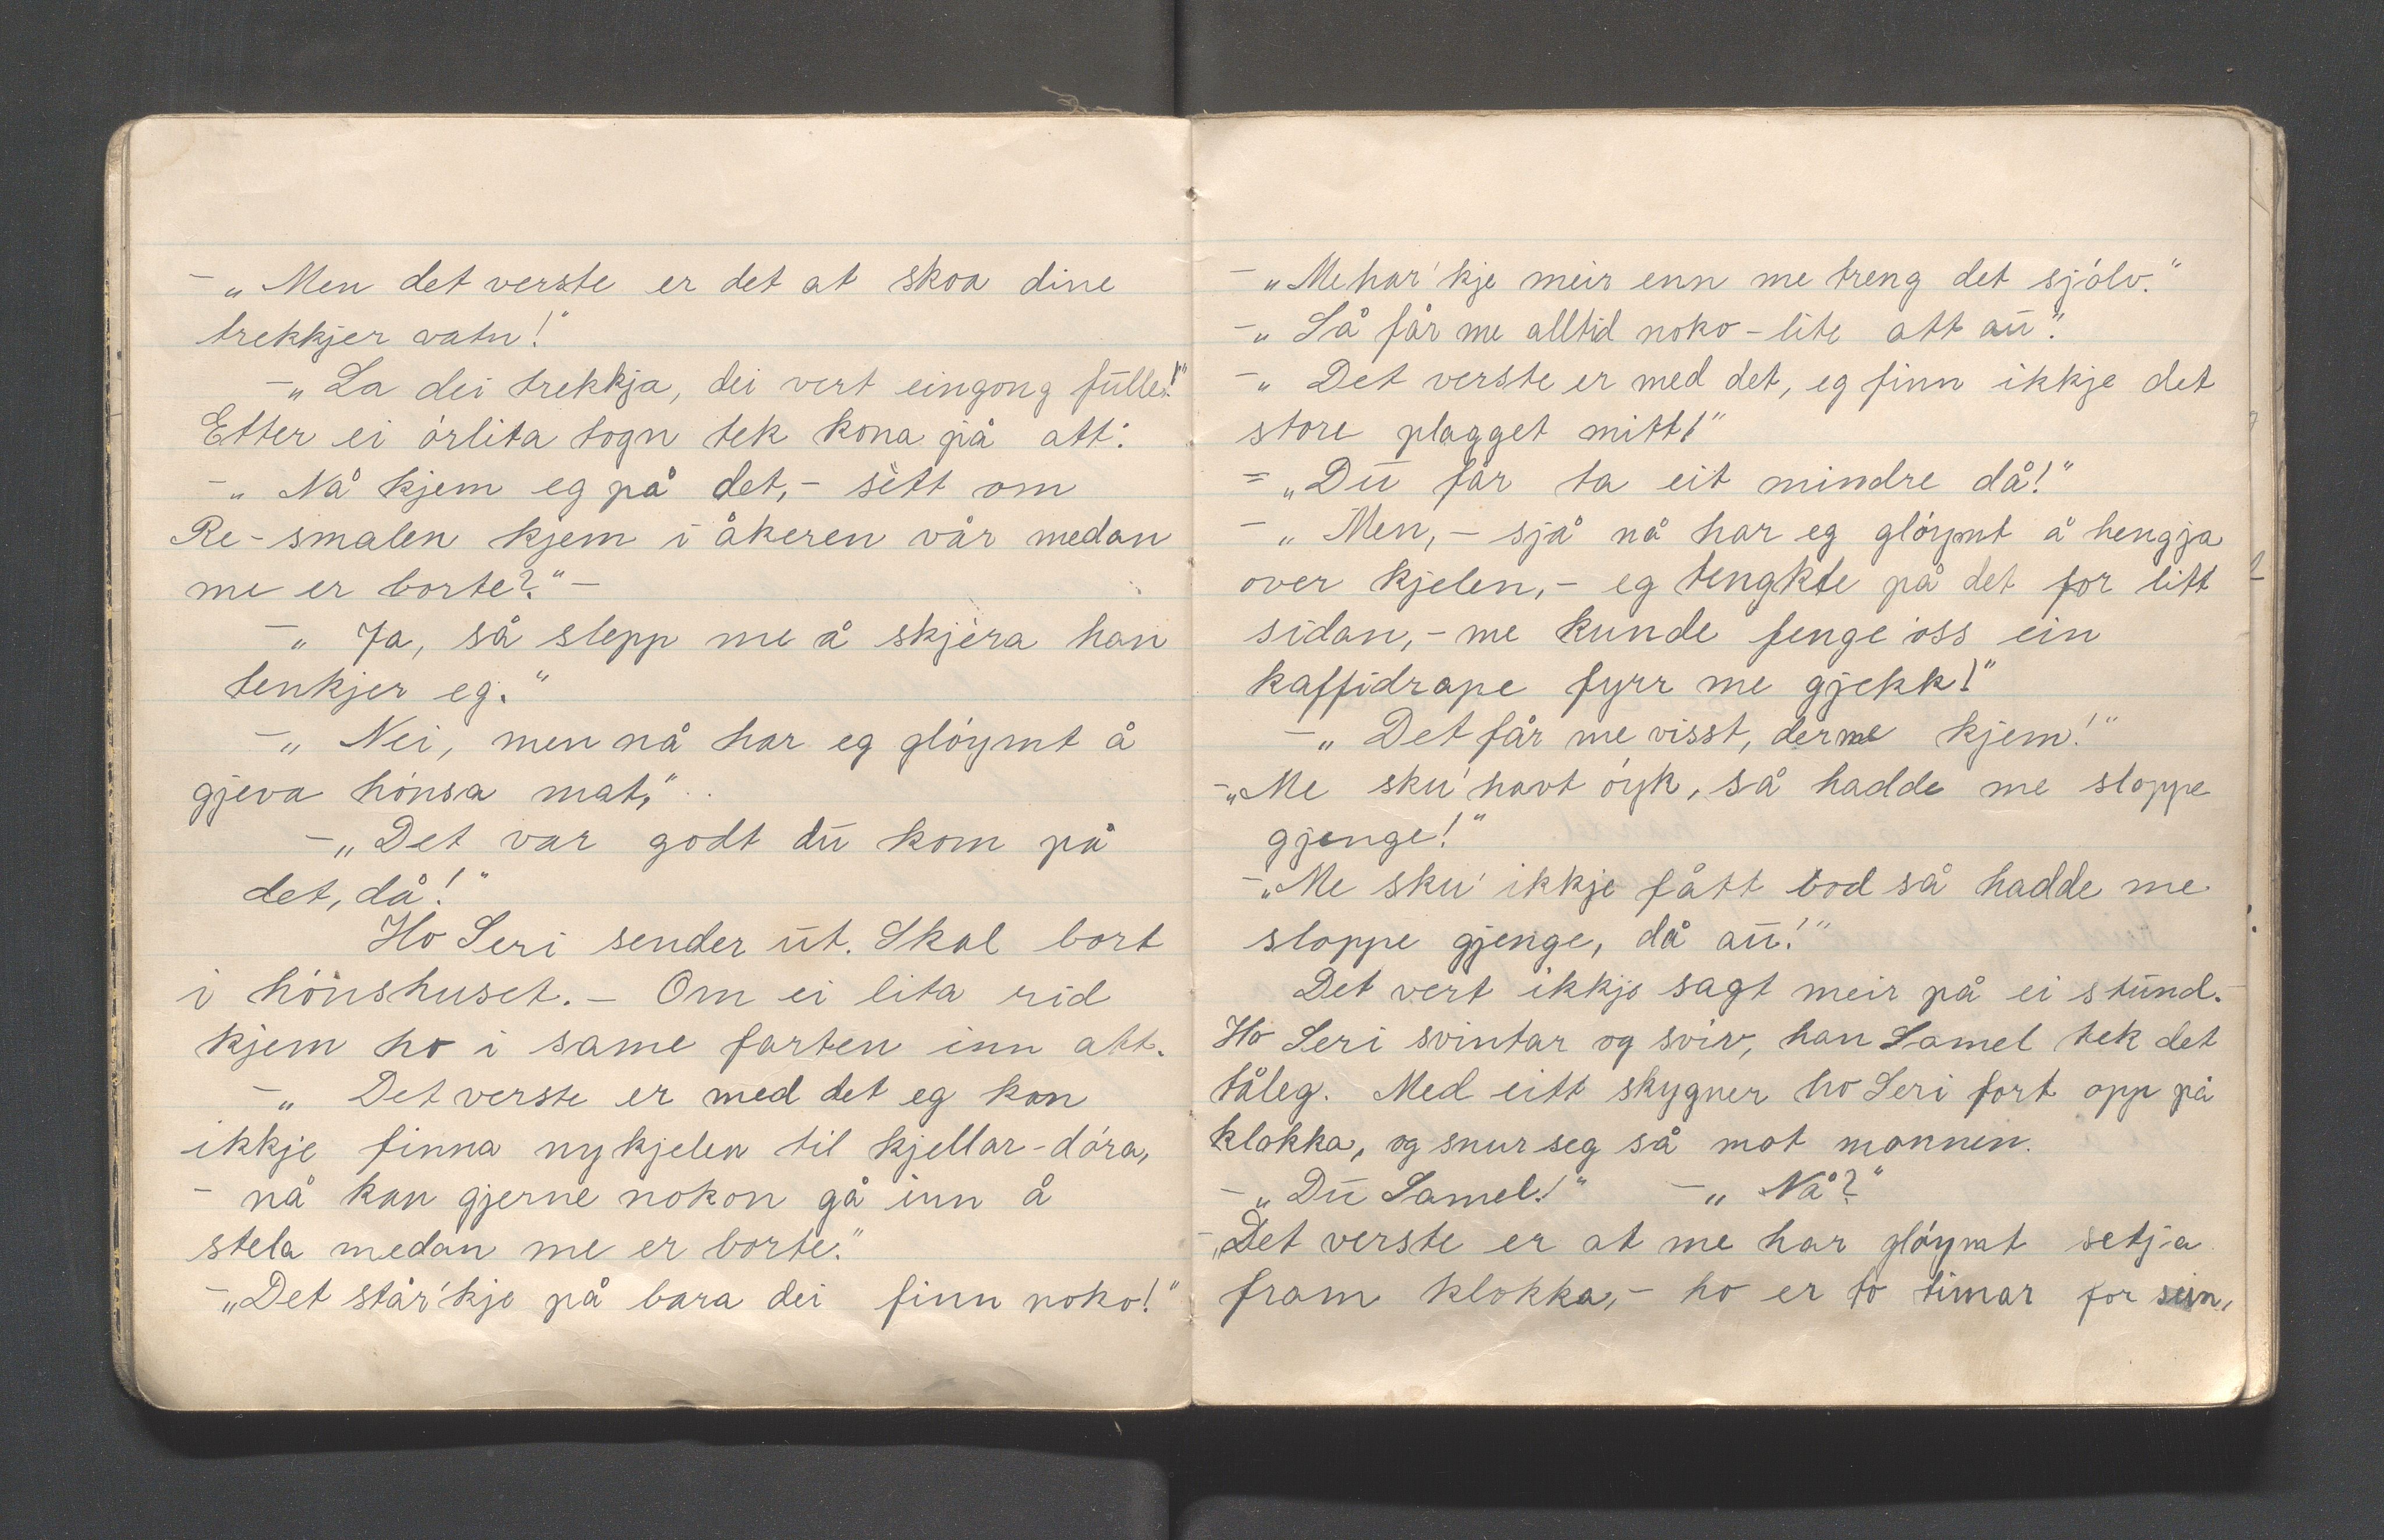 – „Men det verste er det at skoa dine
trekkjer vatn!"
– „La dei trekkja, dei vert eingong fulle!"
Etter ei órlita togn tek kona på att:
– „Nå kjem eg på det, – sètt om
Re-smalen kjem i åkeren vår medan
me er borte?" –
– „Ja, så slepp me å skjèra han
tenkjer eg."
– „Nei, men nå har eg glóymt å
gjeva hónsa mat,"
– „Det var godt du kom på
det, då!"
Ho Seri sender ut. Skal bort
i hónshuset. – Om ei lita rid
kjem ho i same farten inn att.
– „Det verste er med det eg kan
ikkje finna nykjelen til kjellar-dóra,
– nå kan gjerne nokon gå inn å
stela medan me er borte."
– „Det står'kje på bara dei finn noko!"
– „Me har'kje meir enn me treng det sjólv."
– „Så får me alltid noko-lite att au".
– „Det verste er med det, eg finn ikkje det
store plagget mitt!"
= „Du får ta eit mindre då!"
– „Men, – sjå nå har eg glóymt å hengja
over kjelen, – eg tengkte på det for litt
sidan, – me kunde fenge oss ein
kaffidrape fyrr me gjekk!"
– „Det får me visst, der me kjem!"
– „Me sku' havt óyk, så hadde me sloppe
gjenge!"
– „Me sku' ikkje fått bod så hadde me
sloppe gjenge, då au!"
Det vert ikkje sagt meir på ei stund.
Ho Seri svintar og sviv, han Samel tek det
tåleg. Med eitt skygner ho Seri fort opp på
klokka, og snur seg så mot mannen.
– „Du Samel!" – „Nå?"
– „Det verste er at me har glóymt setja
fram klokka, – ho er to timar for sein,